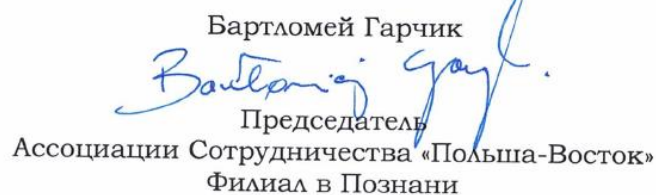 Бартломей Гарчик
Bartłomiej
Председатель
Ассоциации Сотрудничества «Польша-Восток»
Филиал в Познани